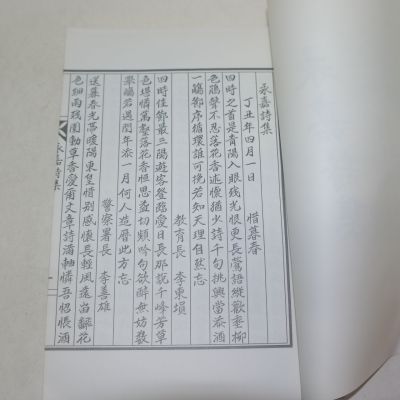 永嘉詩集
丁丑年四月一日 惜暮春
四時之首是青陽入眼殘光恨更長鶯語縱歡垂柳
色鵑聲不忍落花香述懷猶少詩千句挑興當添酒
一觴節序循環誰可挽若知天理自然忘
教育長 李東塤
四時佳節最三陽遊客登臨愛日長那說千峰芳草
色堪憐萬壑落花香恒思益切頻吟句欲醉無妨數
擧觴若過閏年添一月何人造曆此方忘
警察署長 李善雄
送暮春光帶暖陽東皇惜別感懷長輕風遠岫飜花
色細雨殘園動草香愛爾文章詩滿軸憐吾怊悵酒
永嘉詩集
一